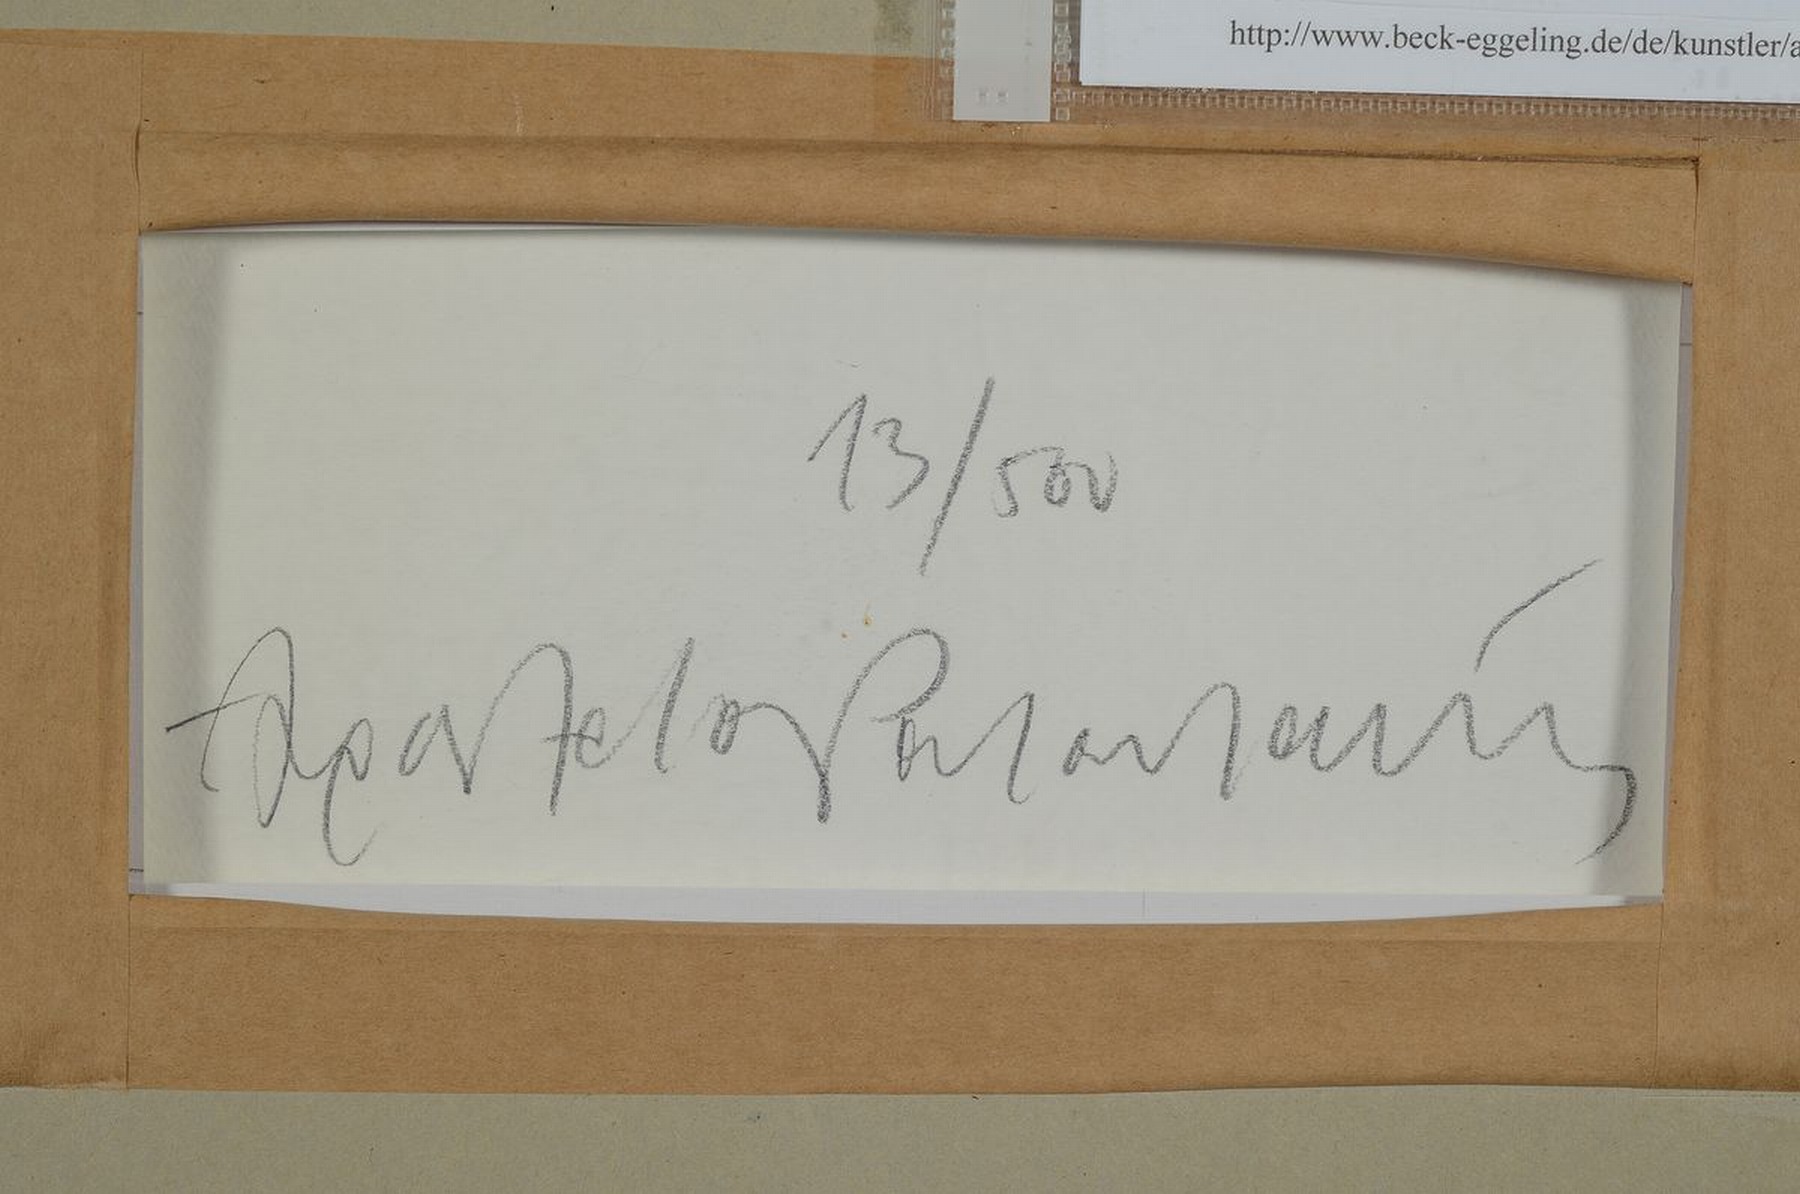 http://www.beck-eggeling.de/de/kunstler/a
13/500
Apostolos Palavrakis